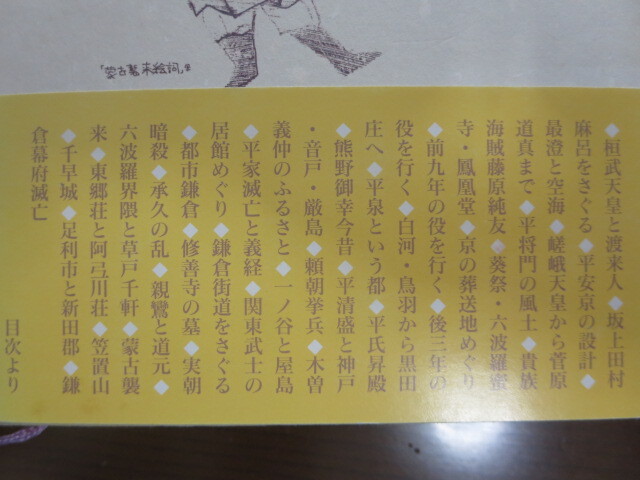 「蒙古襲来絵詞」よ
◆桓武天皇と渡来人◆坂上田村
麻呂をさぐる◆平安京の設計◆
最澄と空海◆嵯峨天皇から菅原
道真まで◆平将門の風土◆貴族
海賊藤原純友◆葵祭・六波羅蜜
寺・鳳凰堂◆京の葬送地めぐり
◆前九年の役を行く◆後三年の
役を行く◆白河・鳥羽から黒田
庄へ◆平泉という都◆平氏昇殿
◆熊野御幸今昔◆平清盛と神戸
・音戸・厳島◆頼朝挙兵◆木曽
義仲のふるさと◆一ノ谷と屋島
◆平家滅亡と義経◆関東武士の
居館めぐり◆鎌倉街道をさぐる
◆都市鎌倉◆修善寺の墓◆実朝
暗殺◆承久の乱◆親鸞と道元◆
六波羅界隈と草戸千軒◆蒙古襲
来◆東郷荘と阿弖川荘◆笠置山
◆千早城◆足利市と新田郡◆鎌
倉幕府滅亡
目次より